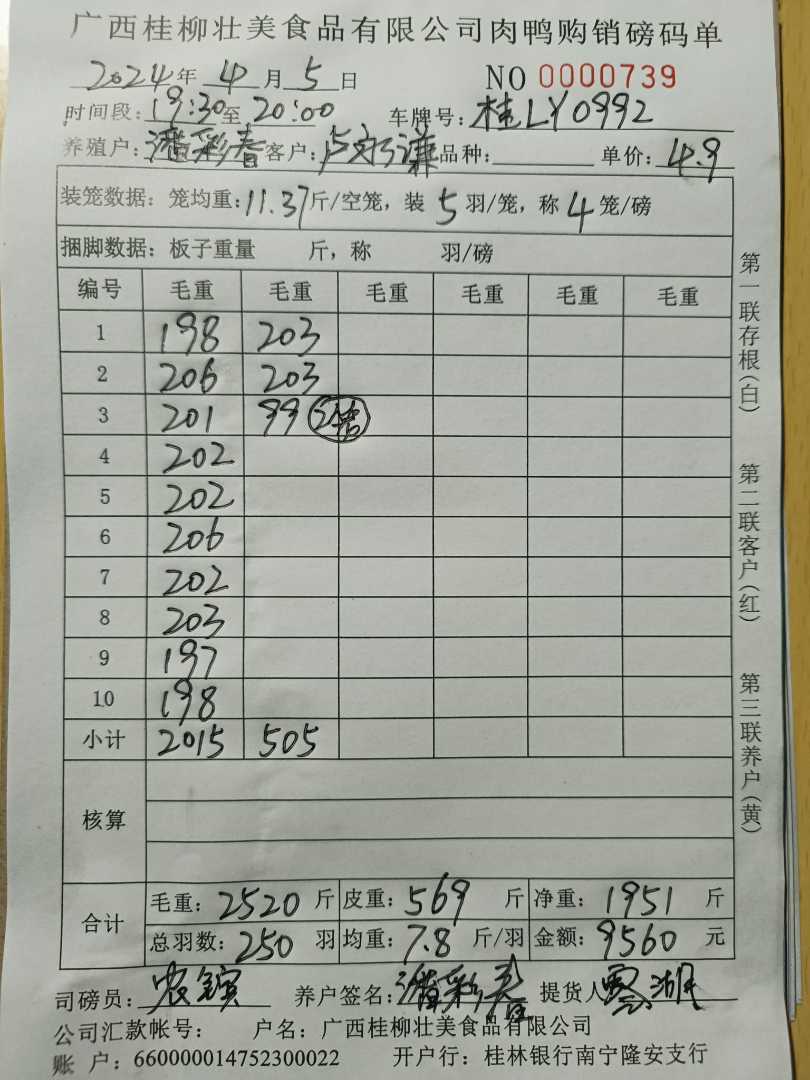 广西桂柳壮美食品有限公司肉鸭购销磅码单
2024年 4月 5日 NO 0000739
时间段:19:30至20:00 车牌号:桂LY0992
养殖户:潘彩春 客户:卢 谦 品种: 单价:4.9
装笼数据:笼均重:11.37斤/空笼,装 5 羽/笼,称 4 笼/磅
捆脚数据:板子重量 斤,称 羽/磅
编号 毛重 毛重 毛重 毛重 毛重 毛重
1 198 203
2 206 203
3 201 99 2笼
4 202
5 202
6 206
7 202
8 203
9 197
10 198
小计 2015 505
核算
合计 毛重:2520斤 皮重:569斤 净重:1951斤
总羽数:250羽 均重:7.8斤/羽 金额:9560元
司磅员:农 养户签名:潘彩春 提货人
公司汇款帐号: 户名:广西桂柳壮美食品有限公司
账 户:660000014752300022 开户行:桂林银行南宁隆安支行
第一联存根(白)
第二联客户(红)
第三联养户(黄)